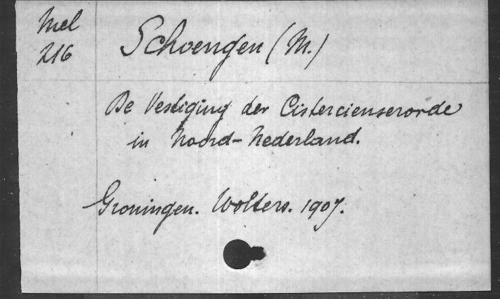 Mel
216
Schoengen (M.)
De Vestiging der Cistercienserorde
in Noord-Nederland.
Groningen. Wolters. 1907.